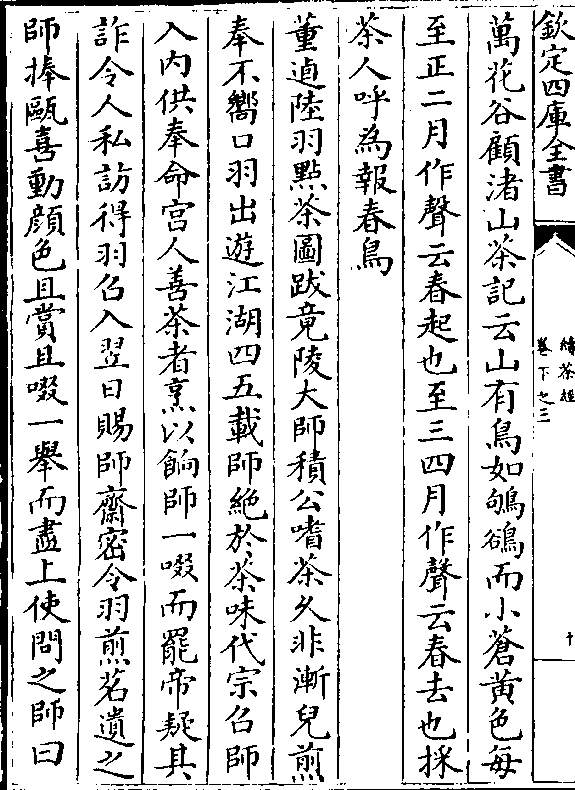 欽定四庫全書
續茶經
卷下之三
十
萬花谷顧渚山茶記云山有鳥如鴝鵒而小蒼黃色每
至正二月作聲云春起也至三四月作聲云春去也採
茶人呼為報春鳥
董逌陸羽點茶圖跋竟陵大師積公嗜茶久非漸兒煎
奉不嚮口羽出遊江湖四五載師絶於茶味代宗召師
入内供奉命宫人善茶者烹以餉師一啜而罷帝疑其
詐令人私訪得羽召入翌日賜師齋密令羽煎茗遺之
師捧甌喜動顔色且賞且啜一舉而盡上使問之師曰